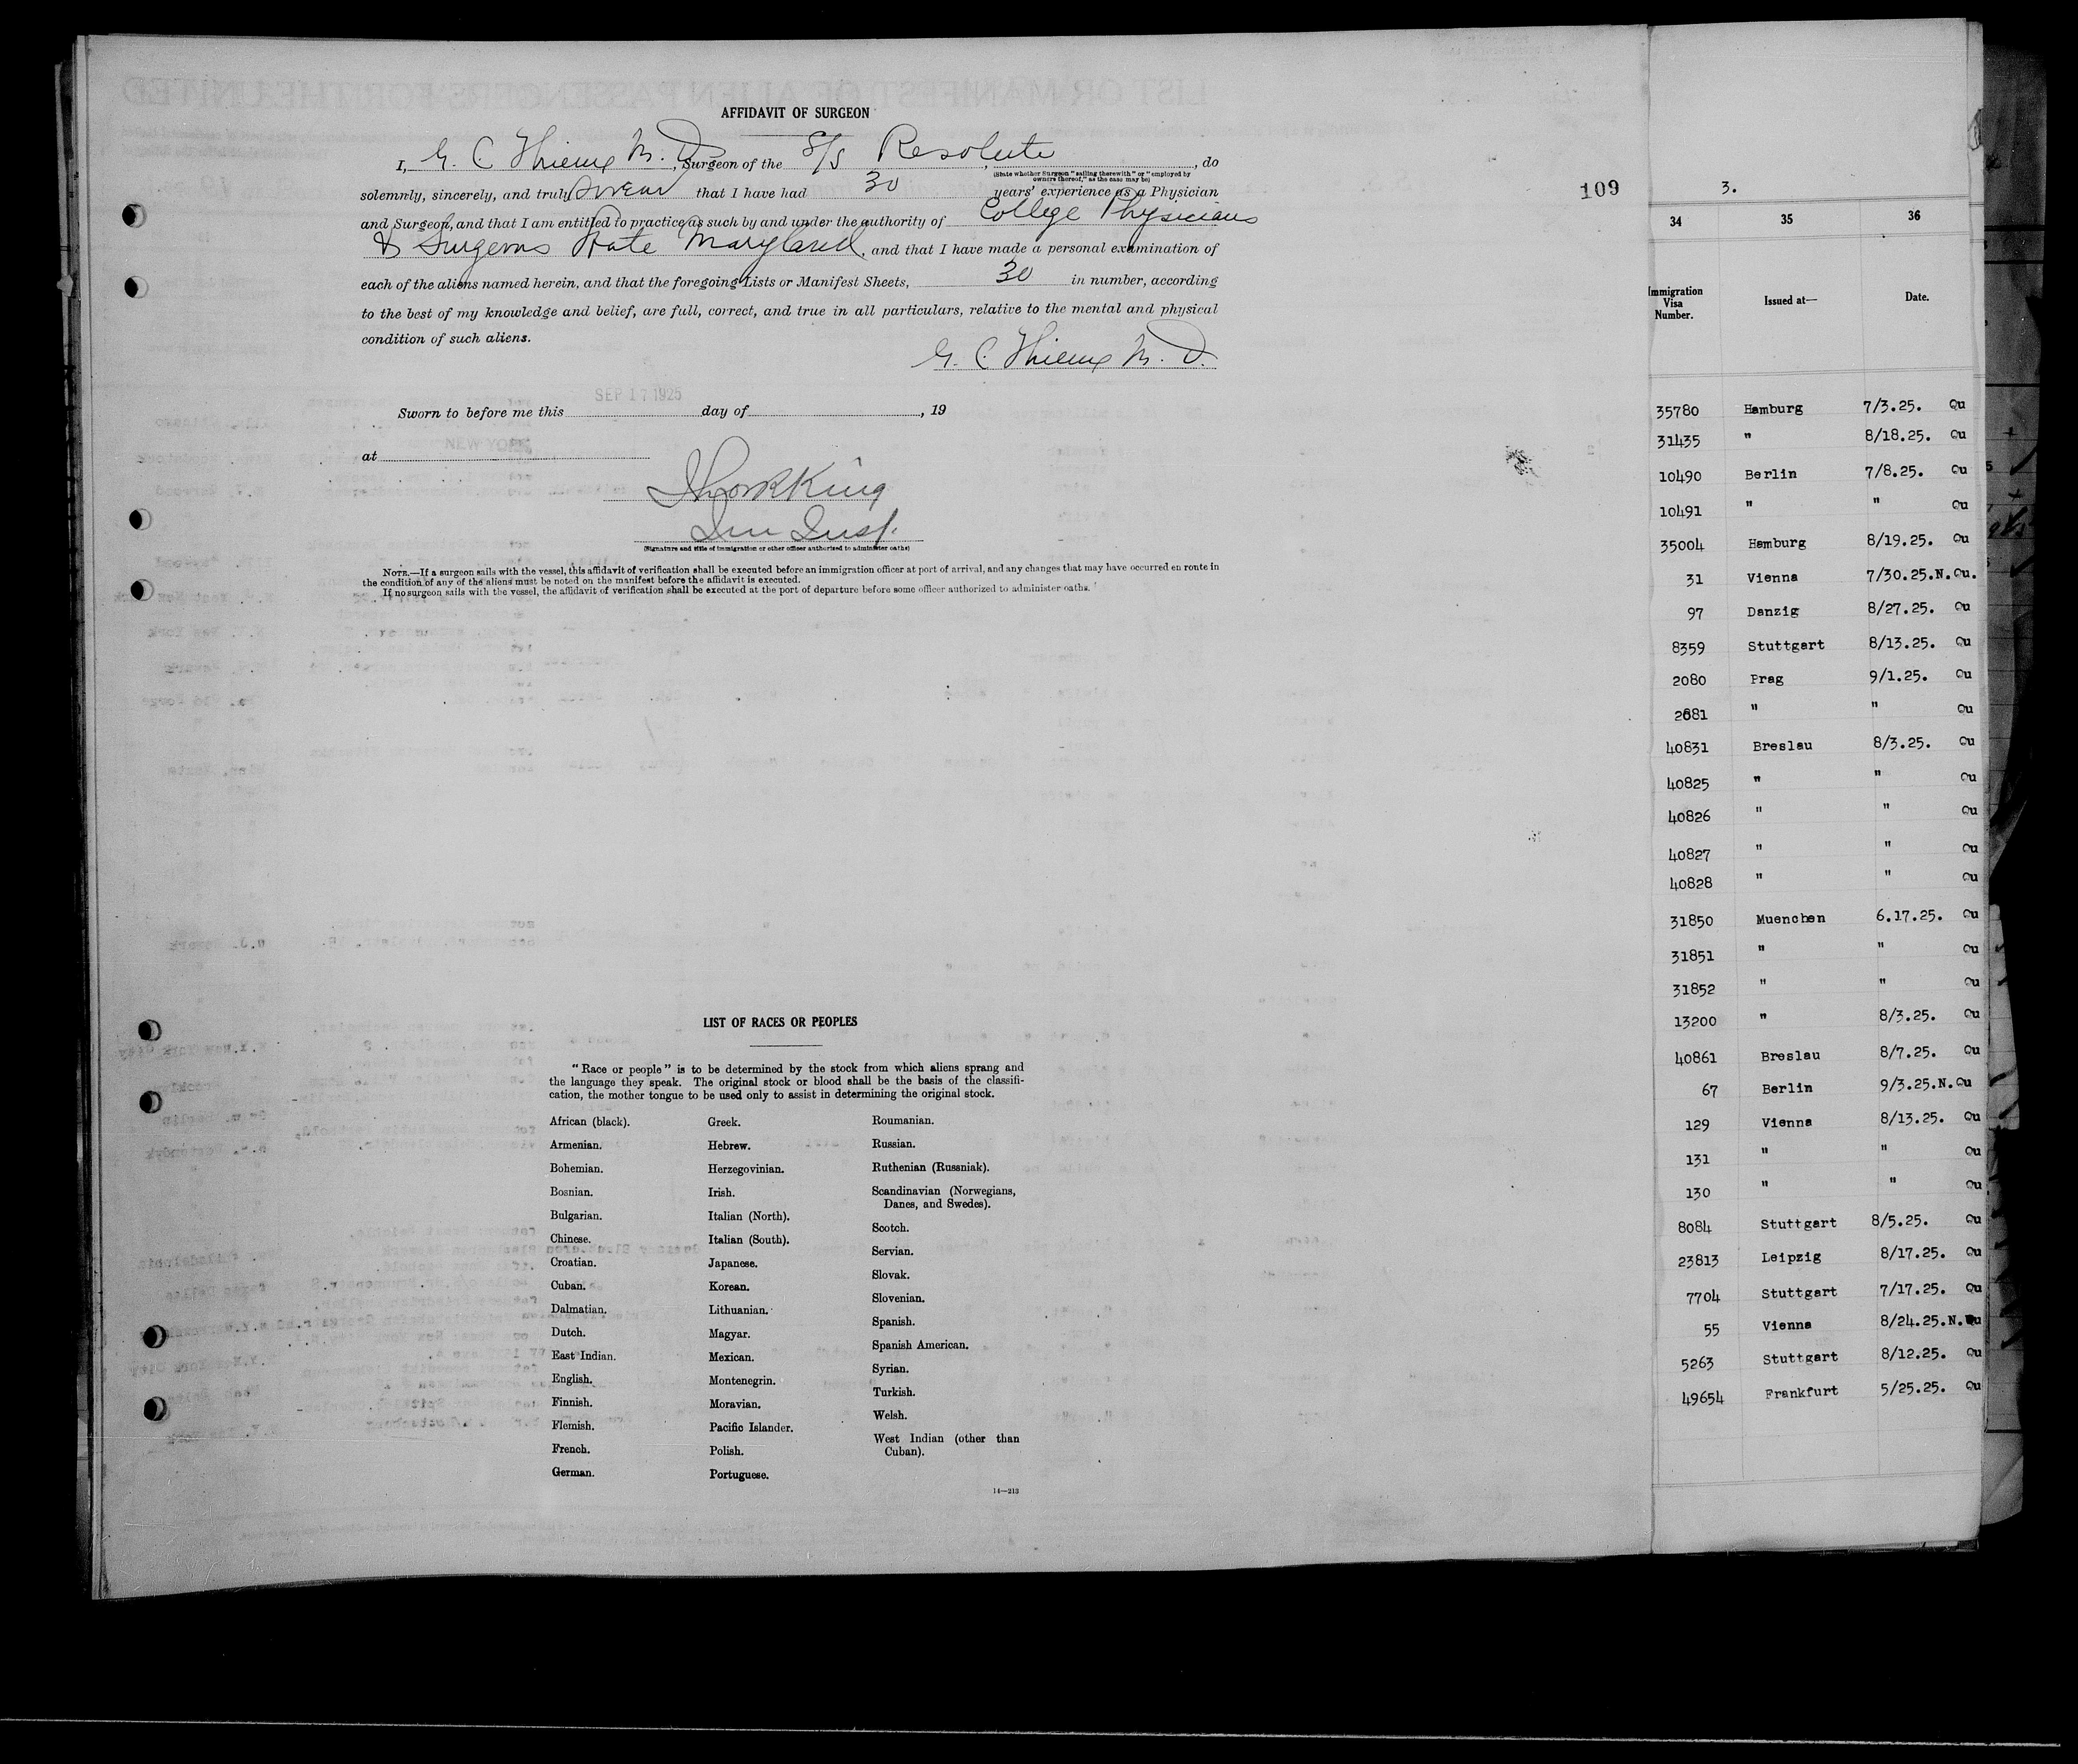 AFFIDAVIT OF SURGEON
I, G. C. M. D., Surgeon of the S/S Resolute, do
(State whether Surgeon "sailing therewith" or "employed by
owners thereof," as the case may be)
solemnly, sincerely, and truly swear that I have had 30 years' experience as a Physician
and Surgeon, and that I am entitled to practice as such by and under the authority of College Physicians
& Surgeons State Maryland, and that I have made a personal examination of
each of the aliens named herein, and that the foregoing Lists or Manifest Sheets, 30 in number, according
to the best of my knowledge and belief, are full, correct, and true in all particulars, relative to the mental and physical
condition of such aliens.
G. C. M. D.
SEP 17 1925
Sworn to before me this day of , 19
NEW YORK
at
King
Imm Insp.
(Signature and title of immigration or other officer authorized to administer oaths)
NOTE.—If a surgeon sails with the vessel, this affidavit of verification shall be executed before an immigration officer at port of arrival, and any changes that may have occurred en route in
the condition of any of the aliens must be noted on the manifest before the affidavit is executed.
If no surgeon sails with the vessel, the affidavit of verification shall be executed at the port of departure before some officer authorized to administer oaths.
LIST OF RACES OR PEOPLES
"Race or people" is to be determined by the stock from which aliens sprang and
the language they speak. The original stock or blood shall be the basis of the classifi-
cation, the mother tongue to be used only to assist in determining the original stock.
African (black).
Armenian.
Bohemian.
Bosnian.
Bulgarian.
Chinese.
Croatian.
Cuban.
Dalmatian.
Dutch.
East Indian.
English.
Finnish.
Flemish.
French.
German.
Greek.
Hebrew.
Herzegovinian.
Irish.
Italian (North).
Italian (South).
Japanese.
Korean.
Lithuanian.
Magyar.
Mexican.
Montenegrin.
Moravian.
Pacific Islander.
Polish.
Portuguese.
Roumanian.
Russian.
Ruthenian (Russniak).
Scandinavian (Norwegians,
Danes, and Swedes).
Scotch.
Servian.
Slovak.
Slovenian.
Spanish.
Spanish American.
Syrian.
Turkish.
Welsh.
West Indian (other than
Cuban).
14—213
109
3.
34 35 36
Immigration
Visa
Number. Issued at— Date.
35780 Hamburg 7/3.25. Qu
31435 " 8/18.25. Qu
10490 Berlin 7/8.25. Qu
10491 " " Qu
35004 Hamburg 8/19.25. Qu
31 Vienna 7/30.25.N.Qu.
97 Danzig 8/27.25. Qu
8359 Stuttgart 8/13.25. Qu
2080 Prag 9/1.25. Qu
2081 " " Qu
40831 Breslau 8/3.25. Qu
40825 " " Qu
40826 " " Qu
40827 " " Qu
40828 " " Qu
31850 Muenchen 6.17.25. Qu
31851 " " Qu
31852 " " Qu
13200 " 8/3.25. Qu
40861 Breslau 8/7.25. Qu
67 Berlin 9/3.25.N.Qu
129 Vienna 8/13.25. Qu
131 " " Qu
130 " " Qu
8084 Stuttgart 8/5.25. Qu
23813 Leipzig 8/17.25. Qu
7704 Stuttgart 7/17.25. Qu
55 Vienna 8/24.25.N.Qu
5263 Stuttgart 8/12.25. Qu
49654 Frankfurt 5/25.25. Qu